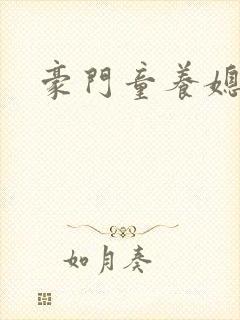 豪門童養媳
如月奏